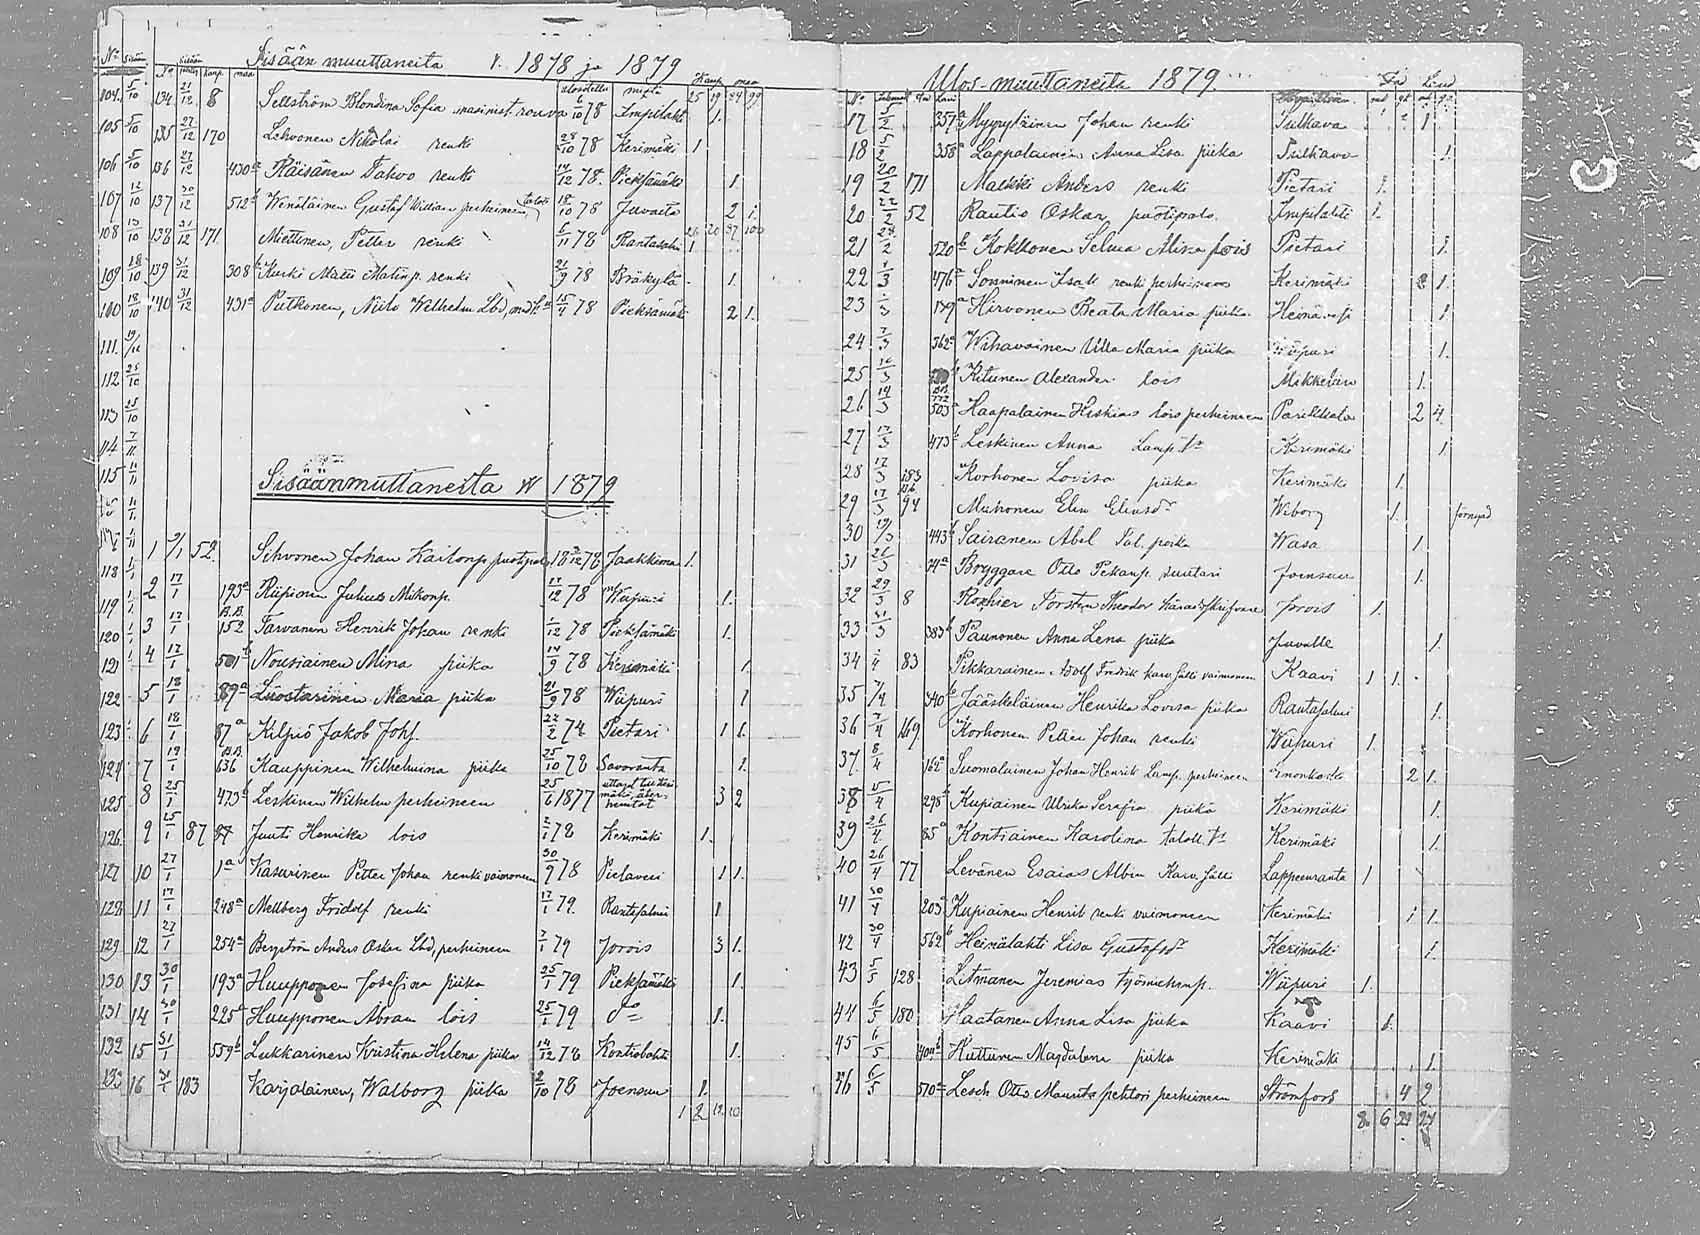 Sisään muuttaneita v. 1878 ja 1879
134 21/12 8 Sellström Blondina Sofia masinist. rouva 6/10 78 Impilaht 1.
135 27/12 170 Lehvonen Nikolai renki 28/10 78 Kerimäki 1
136 27/12 430a Räisänen Tahvo renki 14/12 78. Pieksämäki 1.
137 30/12 512b Wenäläinen Gustaf William perheineen 18/10 78 Juvalta 2 1.
138 31/12 171. Miettinen, Petter renki 6/11 78 Rantasalmi 1
139 31/12 308b Kurki Matti Matinp. renki 21/9 78 Bräkylä 1.
140 31/12 431a Putkonen, Niilo Wilhelm Lbd, 15/4 78 Pieksämäki 2 1.
Sisäänmuttaneita W 1879
1 9/1 52. Sihvonen Johan puotipoi 78 Jaakkima 1.
2 17/1 193a Riipinen Julius Mikonp. 17/12 78 Wiipuri 1.
3 17/1 B.B. 152 Tarvanen Henrik Johan renki 1/12 78 Pieksämäki 1.
4 17/1 501b Nousiainen Mina piika 14/9 78 Kerimäki 1.
5 18/1 89a Luostarinen Maria piika 21/9 78 Wiipuri 1
6 18/1 87a Kilpiö Jakob Johs. 22/2 74 Pietari 1 1.
7 19/1 B.B. 636 Kauppinen Wilhelmina piika 25/10 78 Savoranta 1.
8 25/1 473b Leskinen Wilhelm perheineen 25/6 1877 3 2
9 25/1 87 87 Juuti Henrika lois 2/1 78 Kerimäki 1.
10 27/1 1a Kasurinen Petter Johan renki vaimoneen 30/9 78 Pielavesi 1 1.
11 17/1 248a Mellberg Fridolf renki 17/1 79. Rantasalmi 1
12 27/1 254a Bergström Anders Oskar Lbd, perheineen 7/1 79 Jorois 3 1.
13 30/1 193a Huupponen Josefina piika 25/1 79 Pieksämäki 1.
14 30/1 225a Huupponen Abram lois 25/1 79 do 1.
15 31/1 559b Lukkarinen Kristina Helena piika 14/12 78 Kontiolahti 1.
16 31/1 183 Karjalainen, Walborg piika 2/10 78 Joensuu 1.
1 2 19. 10
Ulos-muuttaneita 1879.
17 5/2 357a Myyryläinen Johan renki Sulkava 1
18 5/2 358a Lappalainen Anna Lisa piika Sulkava 1.
19 20/2 171 Malkki Anders renki Pietari 1.
20 22/2 52 Rautio Oskar, puotipalv. Impilahti 1.
21 28/2 520b Kokkonen Selma Alina lois Pietari 1.
22 1/3 476a Sonninen Isak renki perheineen Kerimäki 2 1.
23 1/3 139a Hirvonen Beata Maria piika Heinävesi 1.
24 7/3 362a Wihavainen Ulla Maria piika Wiipuri 1.
25 10/3 Kitunen Alexander lois Mikkeliin 1.
26 14/3 503a Haapalainen Heskias lois perheineen Parikkala 2 4.
27 17/3 473b Leskinen Anna Lamp. Kerimäki 1.
28 17/3 183 Korhonen Lovisa piika Kerimäki 1.
29 17/3 94 Muhonen Elin Elinsdr Wiborg 1. förnyad
30 19/3 443b Sairanen Abel Tal. poika Wasa 1
31 21/3 74a Bryggare Otto Pekanp. suutari Joensuu 1.
32 29/3 8 Rothier Torsten Theodor häradsskrifvare Jorois 1.
33 31/3 383b Paunonen Anna Lena piika Juvalle 1.
34 1/4 83 Pikkarainen Adolf Fredrik karv. sälli vaimoneen Kaavi 1 1.
35 7/4 340b Jääskeläinen Henrika Lovisa piika Rantasalmi 1.
36 7/4 169 Korhonen Petter Johan renki Wiipuri 1.
37. 8/4 162a Suomalainen Johan Henrik Lamp. perheineen 2 1.
38 15/4 298b Kupiainen Ulrika Serafia piika Kerimäki 1.
39 26/4 85a Kontiainen Karolina Kerimäki 1.
40 26/4 77 Levänen Esaias Albin Karv. sälli Lappeenranta 1
41 30/4 203a Kupiainen Henrik renki vaimoneen Kerimäki 1 1.
42 30/4 562b Heinälahti Lisa Gustafsdr Kerimäki 1.
43 5/5 128 Litmanen Jeremias työmiehenp. Wiipuri 1.
44 6/5 180 Haatanen Anna Lisa piika Kaavi 1.
45 6/5 404b Huttunen Magdalena piika Kerimäki 1.
46 6/5 510a Lesch Otto Maurits pehtori perheineen Strömfors 4 2
8. 6 27